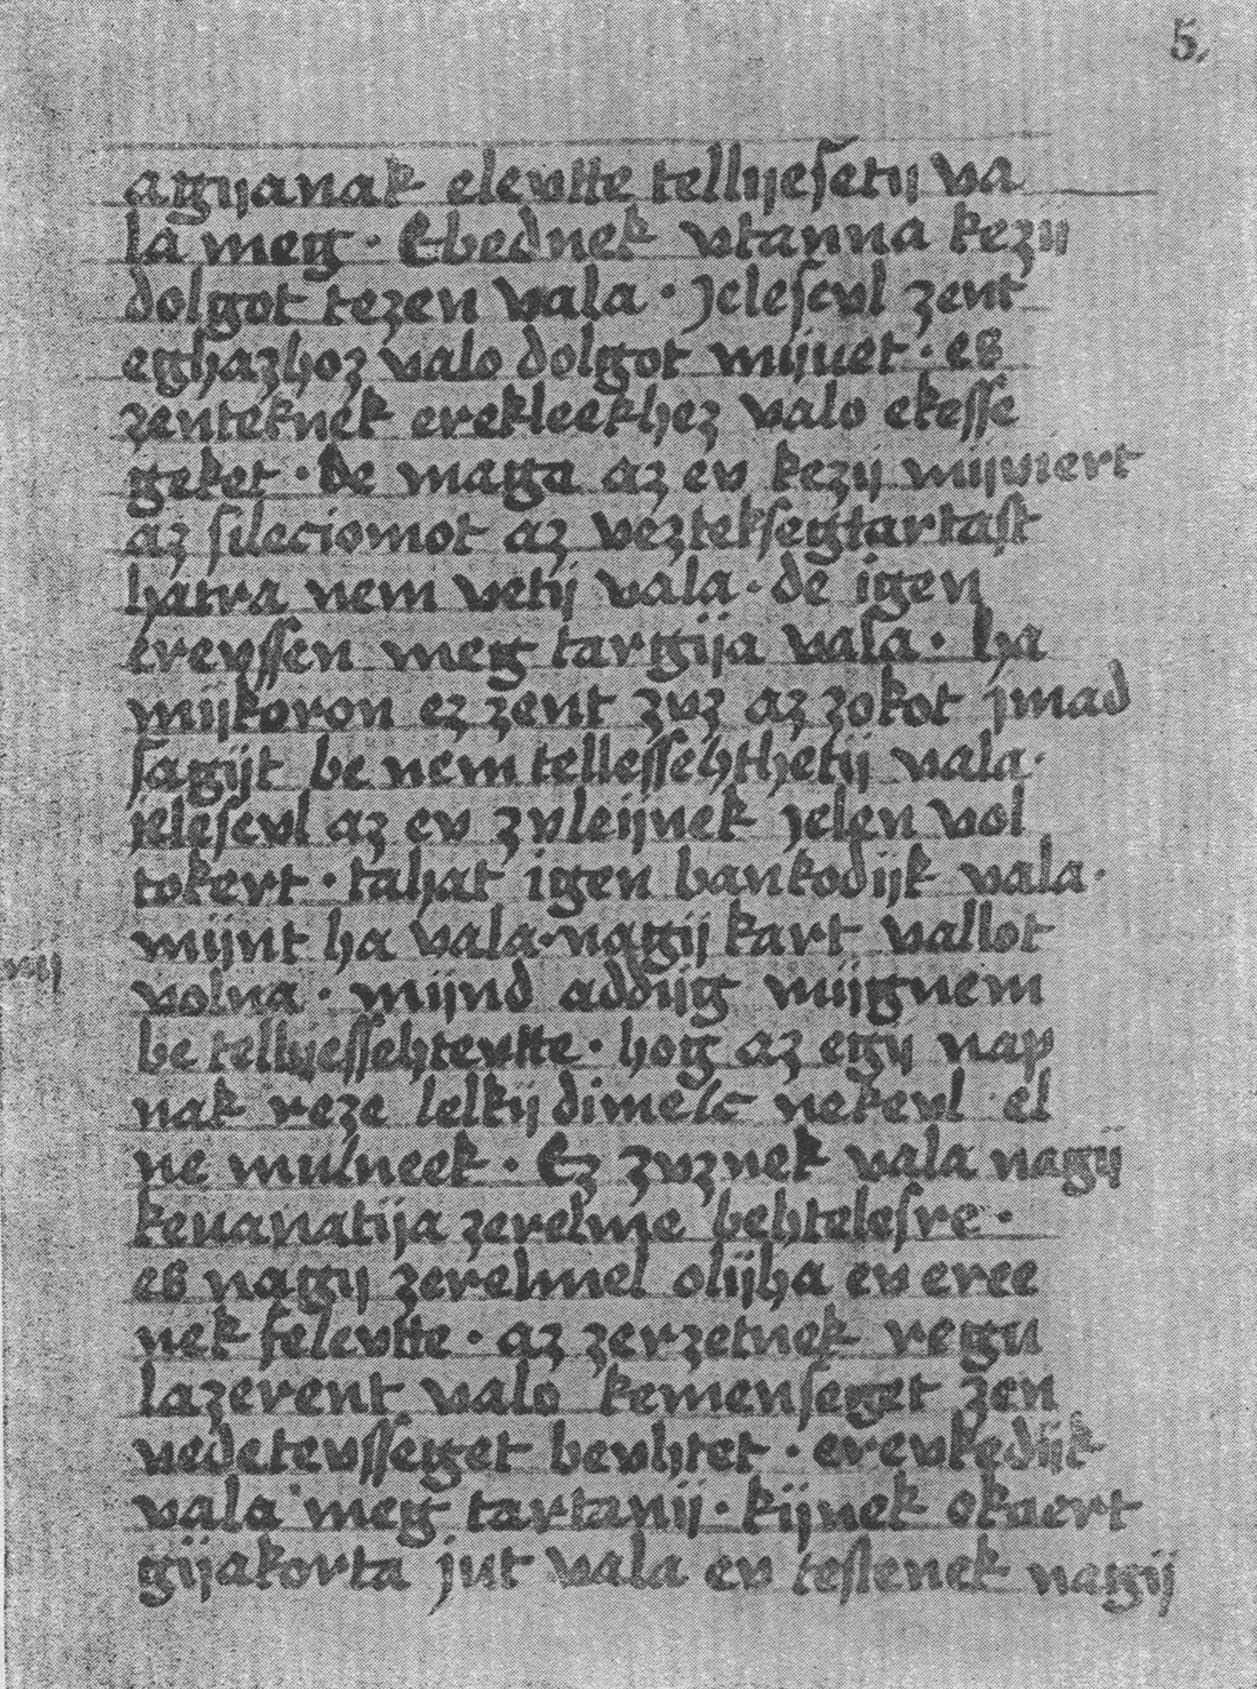 5.
aťgÿanak elevtte tellÿeſetÿ va
la meg · Ebednek vtanna kezÿ
dolgot tezen vala · Jeleſevl zent
eghazhoz valo dolgot mÿuet · es
zenteknek erekleekhez valo ekeſſe
geket · de maga az ev kezÿ mÿviert
az ſileciomot az veztekſegtartaſt
hatra nem vetÿ vala · de igen
erevſſen meg targÿa vala · ha
mÿkoron ez zent zvz az zokot jmad
ſagÿt be nem telleſſehthetÿ vala ·
jeleſevl az ev zvleÿnek jelen vol
tokert · tahat igen bankodÿk vala ·
mÿnt ha vala · nagÿ kart vallot
volna · mÿnd addÿg mÿgnem
be tellÿeſſehtevtte · hog az egÿ nap
nak reze lelkÿ dimelc nekevl el
ne mulneek · Ez zvznek vala nagÿ
keuanatÿa zerelme behteleſre ·
es nagÿ zerelmel olÿha ev eree
nek felevtte · az zerzetnek regu
lazerent valo kemenſeget zen
vedetevſſeget bevhtet · erevkedÿk
vala meg tartanÿ · kÿnek okaert
gÿakorta jut vala ev teſtenek nagÿ